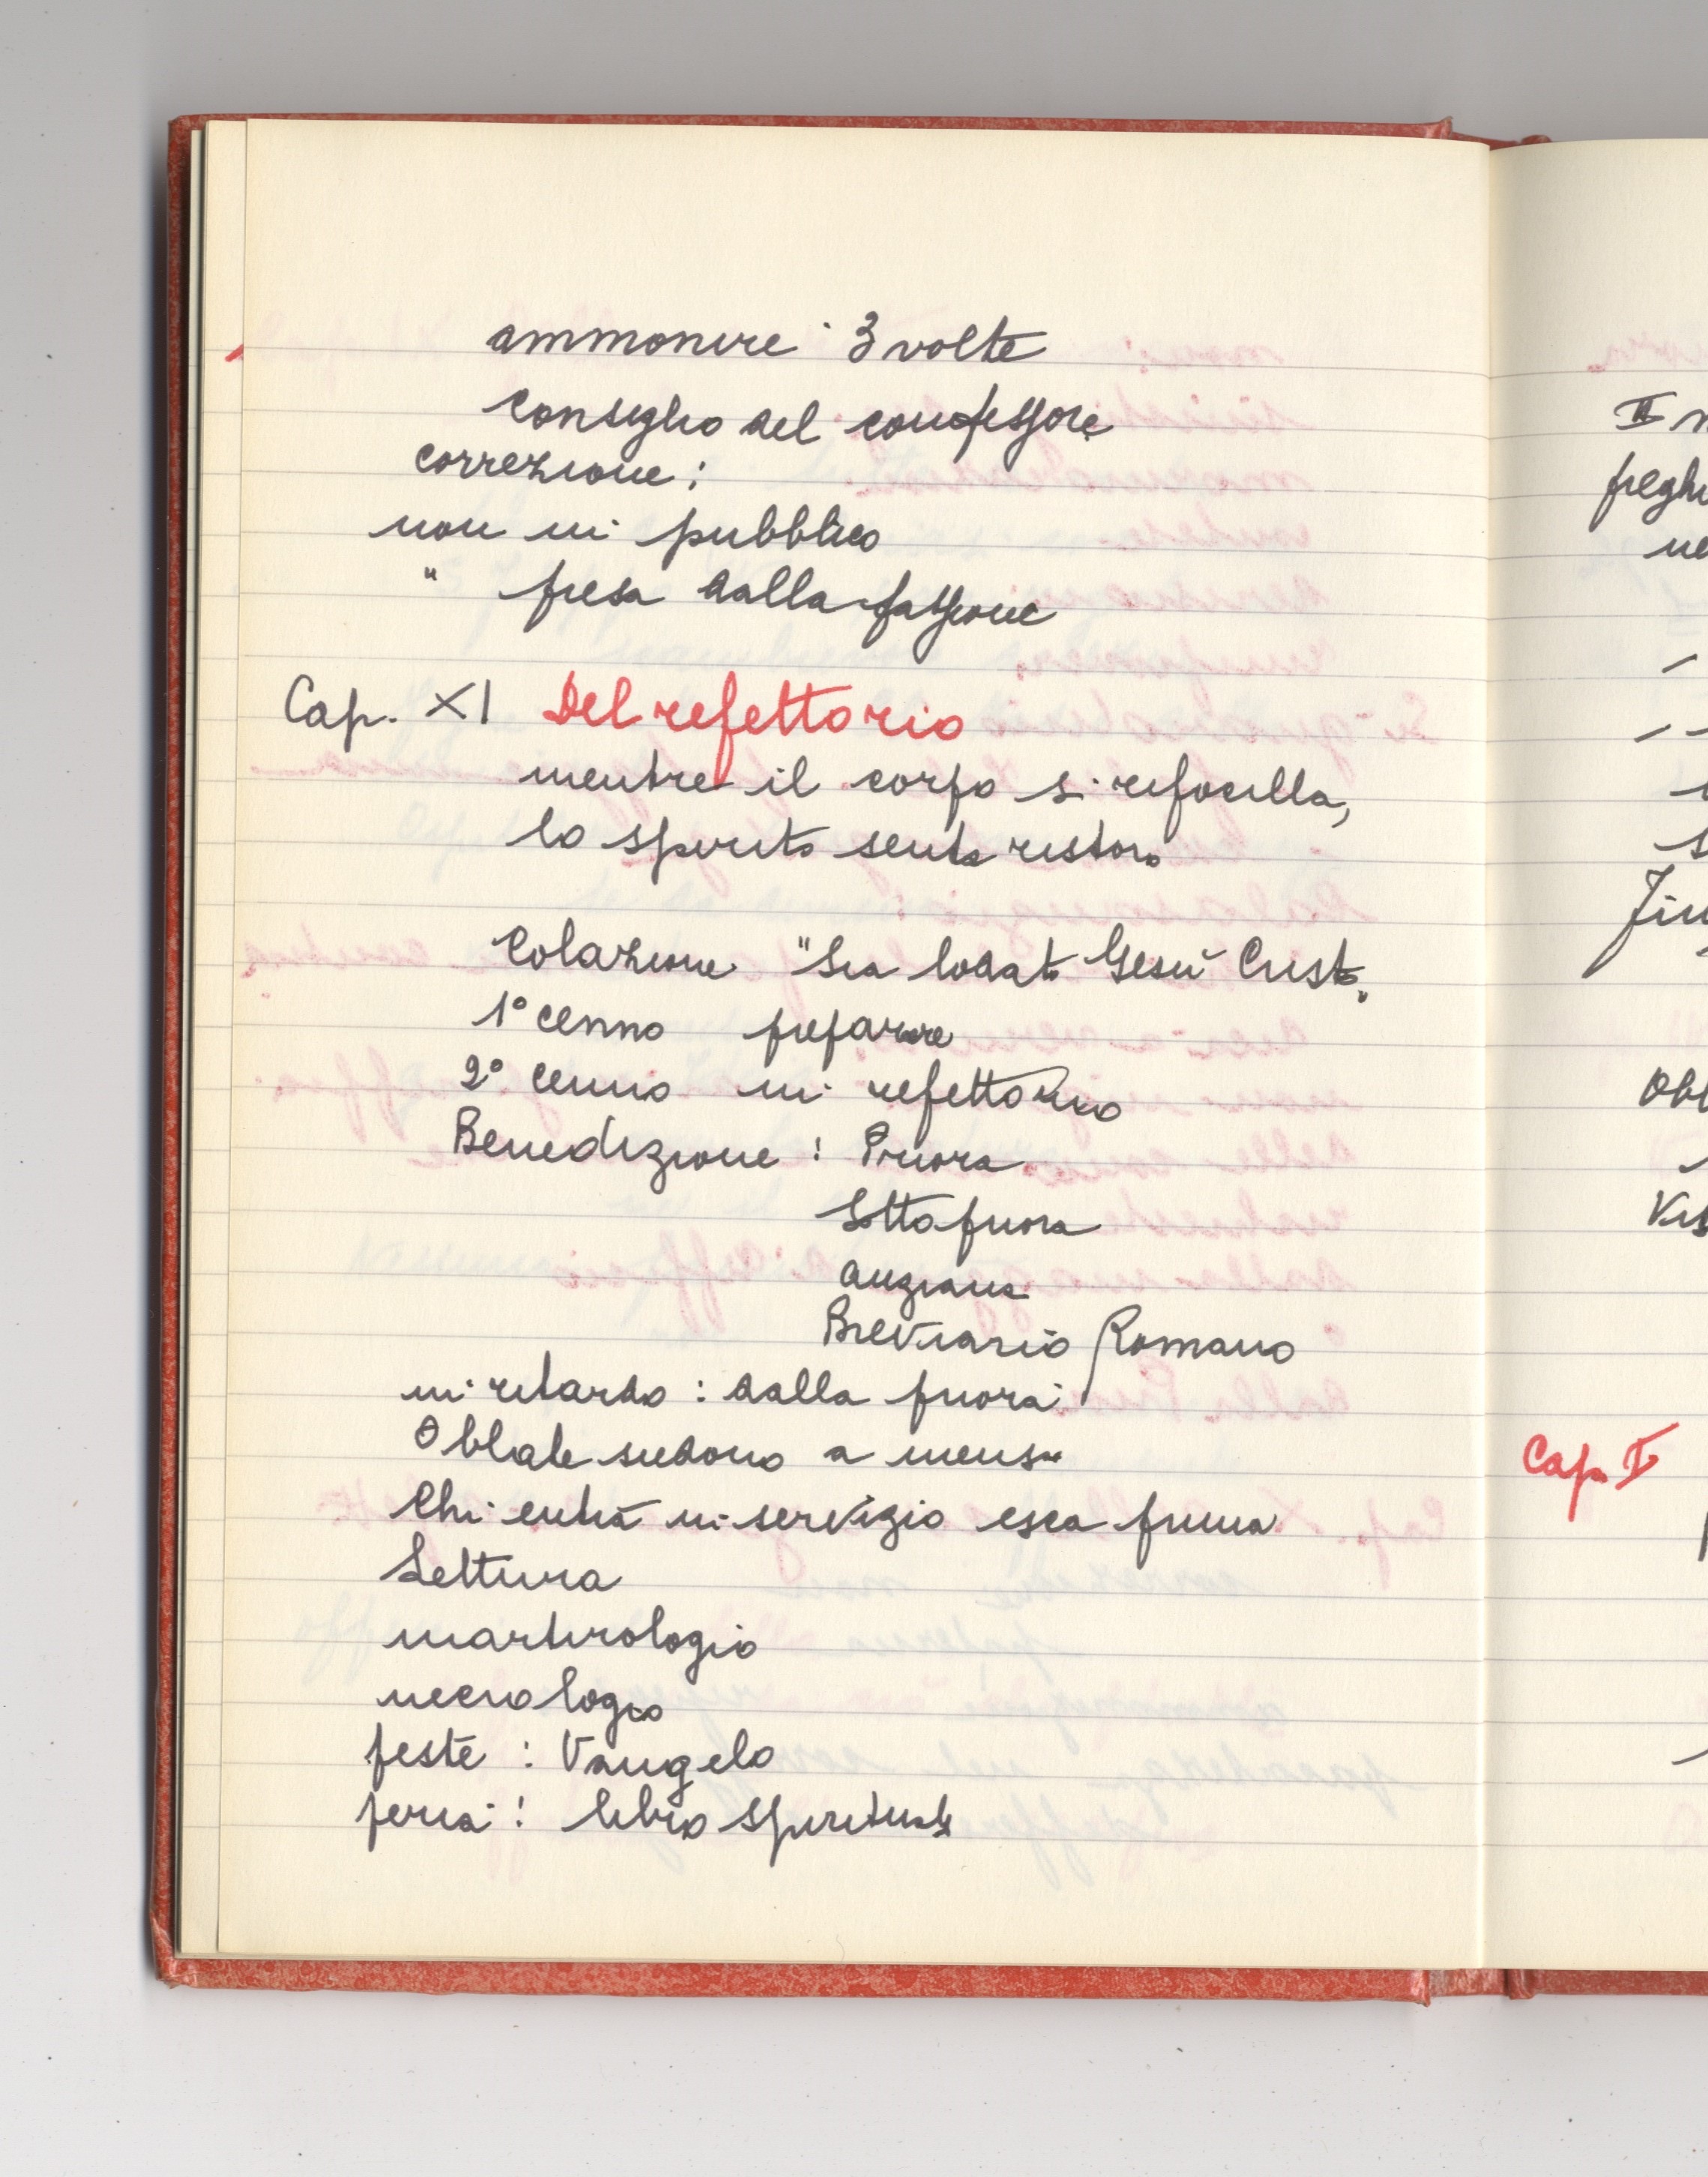 ammonire 3 volte
Consiglio del confessore
correzione :
non in pubblico
" presa dalla passione
Cap. XI Del refettorio
mentre il corpo si refocilla,
lo spirito senta ristoro
Colazione "Sia lodato Gesù Cristo"
1° cenno preparare
2° cenno in refettorio
Benedizione : Priora
Sottopriora
anziana
Breviario Romano
in ritardo : dalla priora
Oblate siedono a mensa
Chi entrà in servizio esca prima
Lettura
martirologio
necrologio
feste : Vangelo
feria : libro spirituale
II
Cap. I